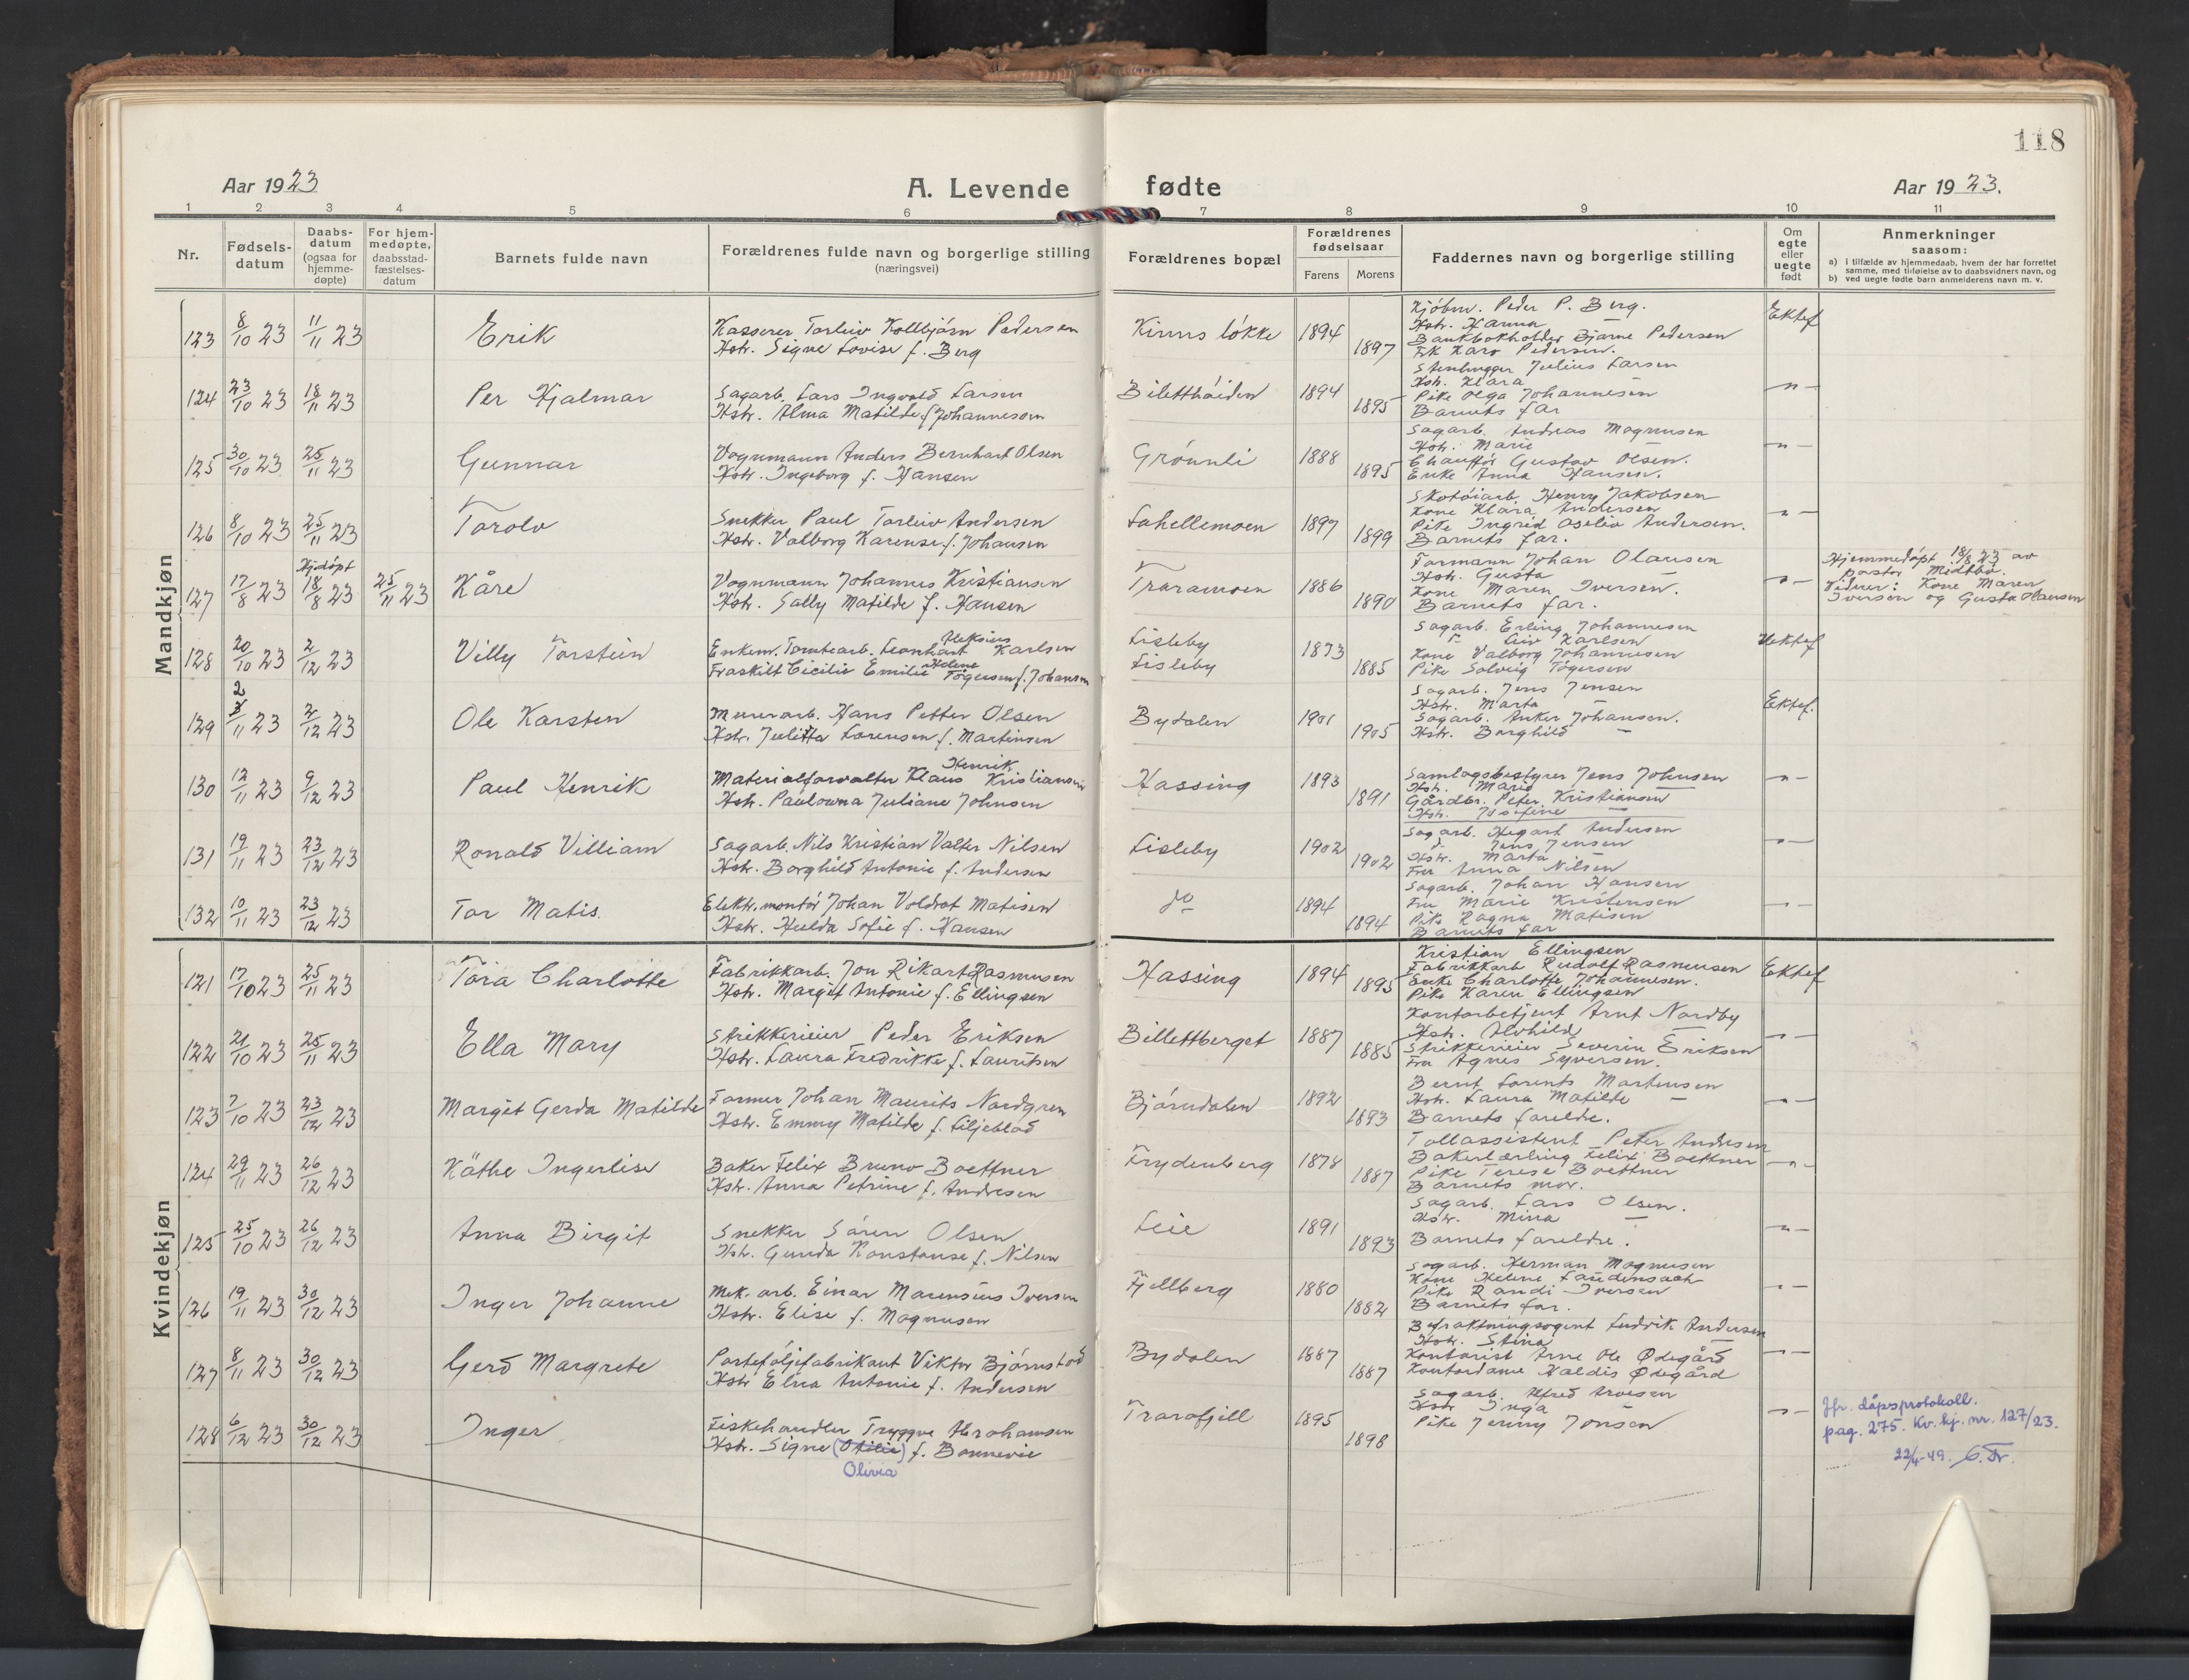 118
Aar 1923
A. Levende fødte
Aar 1923.
1 2 3 4 5 6 7 8 9 10 11
Nr.
Fødsels-
datum
Daabs-
datum
(ogsaa for
hjemme-
døpte)
For hjem-
medøpte,
daabsstad-
fæstelses-
datum
Barnets fulde navn
Forældrenes fulde navn og borgerlige stilling
(næringsvei)
Forældrenes bopæl
Forældrenes
fødselsaar
Farens Morens
Faddernes navn og borgerlige stilling
Om
egte
eller
uegte
født
Anmerkninger
saasom:
a) i tilfælde av hjemmedaab, hvem der har forrettet
samme, med tilføielse av to daabsvidners navn, og
b) ved uegte fødte barn anmelderens navn m. v.
Mandkjøn
123 8/10 23 11/11 23 Erik
Kasserer Torleiv Kollbjørn Pedersen
Hstr. Signe Lovise f. Berg
Kirus løkke 1894 1897
Kjøbm. Peder P. Berg.
Hstr. Hanna —
Bankbokholder Bjarne Pedersen
Frk Karo Pedersen.
Ektef
124 23/10 23 18/11 23 Per Hjalmar
Sagarb. Lars Ingvald Larsen
Hstr. Alma Matilde f. Johannesen
Biletthøiden 1894 1895
Stenhugger Julius Larsen
Hstr. Klara
Pike Olga Johannesen
Barnets far
—"—
125 30/10 23 25/11 23 Gunnar
Vognmann Anders Bernhart Olsen
Hstr. Ingeborg f. Hansen
Grønnli 1888 1895
Sagarb. Andreas Magnusen
Hstr. Marie —
Chauffør Gustav Olsen.
Enke Anna Hansen.
—"—
126 8/10 23 25/11 23 Torolv
Snekker Paul Torleiv Andersen
Hstr. Valborg Karense f. Johansen
Lahellemoen 1897 1899
Skotøiarb. Henry Jakobsen
Kone Klara Andersen
Pike Ingrid Oselia Andersen.
Barnets far.
—"—
127 17/8 23 Hjdøpt 18/8 23 25/11 23 Kåre
Vognmann Johannes Kristiansen
Hstr. Sally Matilde f. Hansen
Traramoen 1886 1890
Formann Johan Olausen
Hstr. Gusta —
Kone Maren Iversen.
Barnets far.
—"—
Hjemmedøpt 18/8 23 av
pastor Midtbø.
Vidner: Kone Maren
Iversen og Gusta Olausen
128 20/10 23 2/12 23 Villy Torstein
Enkem. Tomtearb. Leonhart Aleksius Karlsen
Fraskilt Cicilie Emilie Helene Tøgersen f. Johansen
Lisleby
Lisleby
1873 1885
Sagarb. Erling Johannesen
do Leiv Karlsen
Kone Valborg Johannesen
Pike Solveig Tøgersen
Uektef
129 2/11 23 2/12 23 Ole Karsten
Murerarb. Hans Petter Olsen
Hstr. Julitta Lorensen f. Martinsen
Bydalen 1901 1905
Sagarb. Jens Jensen
Hstr. Marta —
Sagarb. Anker Johansen.
Hstr. Borghild —
Ektef.
130 12/11 23 9/12 23 Paul Henrik
Materialforvalter Klaus Henrik Kristiansen
Hstr. Paulowna Juliane Johnsen
Hassing 1893 1891
Samlagsbestyrer Jens Johnsen
Hstr. Marie —
Gårdbr. Peter Kristiansen
Hstr. Josefine —
—"—
131 19/11 23 23/12 23 Ronald Villiam
Sagarb. Nils Kristian Valter Nilsen
Hstr. Borghild Antonie f. Andersen
Lisleby 1902 1902
Sagarb. Hegart Andersen
do Jens Jensen
Hstr. Marta —
Fru Anna Nilsen
—"—
132 10/11 23 23/12 23 Tor Matis.
Elektr. montør Johan Voldrat Matisen
Hstr. Hulda Sofie f. Hansen
do 1894 1894
Sagarb. Johan Hansen
Fru Marie Kristensen
Pike Ragna Matisen
Barnets far
—"—
Kvindekjøn
121 17/10 23 25/11 23 Tora Charlotte
Fabrikkarb. Jon Rikart Rasmusen
Hstr. Margit Antonie f. Ellingsen
Hassing 1894 1895
Kristian Ellingsen
Fabrikkarb Rudolf Rasmusen
Enke Charlotte Johannesen.
Pike Karen Ellingsen
Ektef
122 21/10 23 25/11 23 Ella Mary
Strikkerieier Peder Eriksen
Hstr. Laura Fredrikke f. Lauritsen
Billettberget 1887 1885
Kontorbetjent Arnt Nordby
Hstr. Alvhild —
Strikkerieier Severin Eriksen
Fru Agnes Syversen.
—"—
123 7/10 23 23/12 23 Margit Gerda Matilde
Former Johan Maurits Nordgren
Hstr. Emmy Matilde f. Liljeblad
Bjørndalen 1892 1893
Bernt Lorents Martinsen
Hstr. Laura Matilde —
Barnets foreldre.
—"—
124 29/11 23 26/12 23 Käthe Ingerlise
Baker Felix Bruno Boettner
Hstr. Anna Petrine f. Andresen
Frydenberg 1878 1887
Tollassistent Peter Andresen
Bakerlærling Felix Boettner
Pike Terese Boettner
Barnets mor.
—"—
125 25/10 23 26/12 23 Anna Birgit
Snekker Søren Olsen
Hstr. Gunda Konstanse f. Nilsen
Leie 1891 1893
Sagarb. Lars Olsen.
Hstr. Mina —
Barnets foreldre.
—"—
126 19/11 23 30/12 23 Inger Johanne
Mek. arb. Einar Marensius Iversen
Hstr. Elise f. Magnusen
Fjellberg 1880 1882
Sagarb. Herman Magnusen
Kone Helene
Pike Randi Iversen
Barnets far.
—"—
127 8/11 23 30/12 23 Gerd Margrete
Porteføljefabrikant Viktor Bjørnstad
Hstr Elna Antonie f. Andersen
Bydalen 1887 1887
Befraktningsagent Ludvik Andersen
Hstr. Stina —
Kontorist Arne Ole Ødegård
Kontordame Haldis Ødegård
—"—
128 6/12 23 30/12 23 Inger
Fiskehandler Tryggve Abrahamsen
Hstr. Signe (Otilie) f. Bonnevie
Olivia
Trarafjell 1895 1898
Sagarb. Alfred Arvesen
Hstr Inga —
Pike Jenny Jonsen
—"—
Jfr. dåpsprotokoll.
pag. 275. Kv. kj. nr. 127/23.
22/4-49.